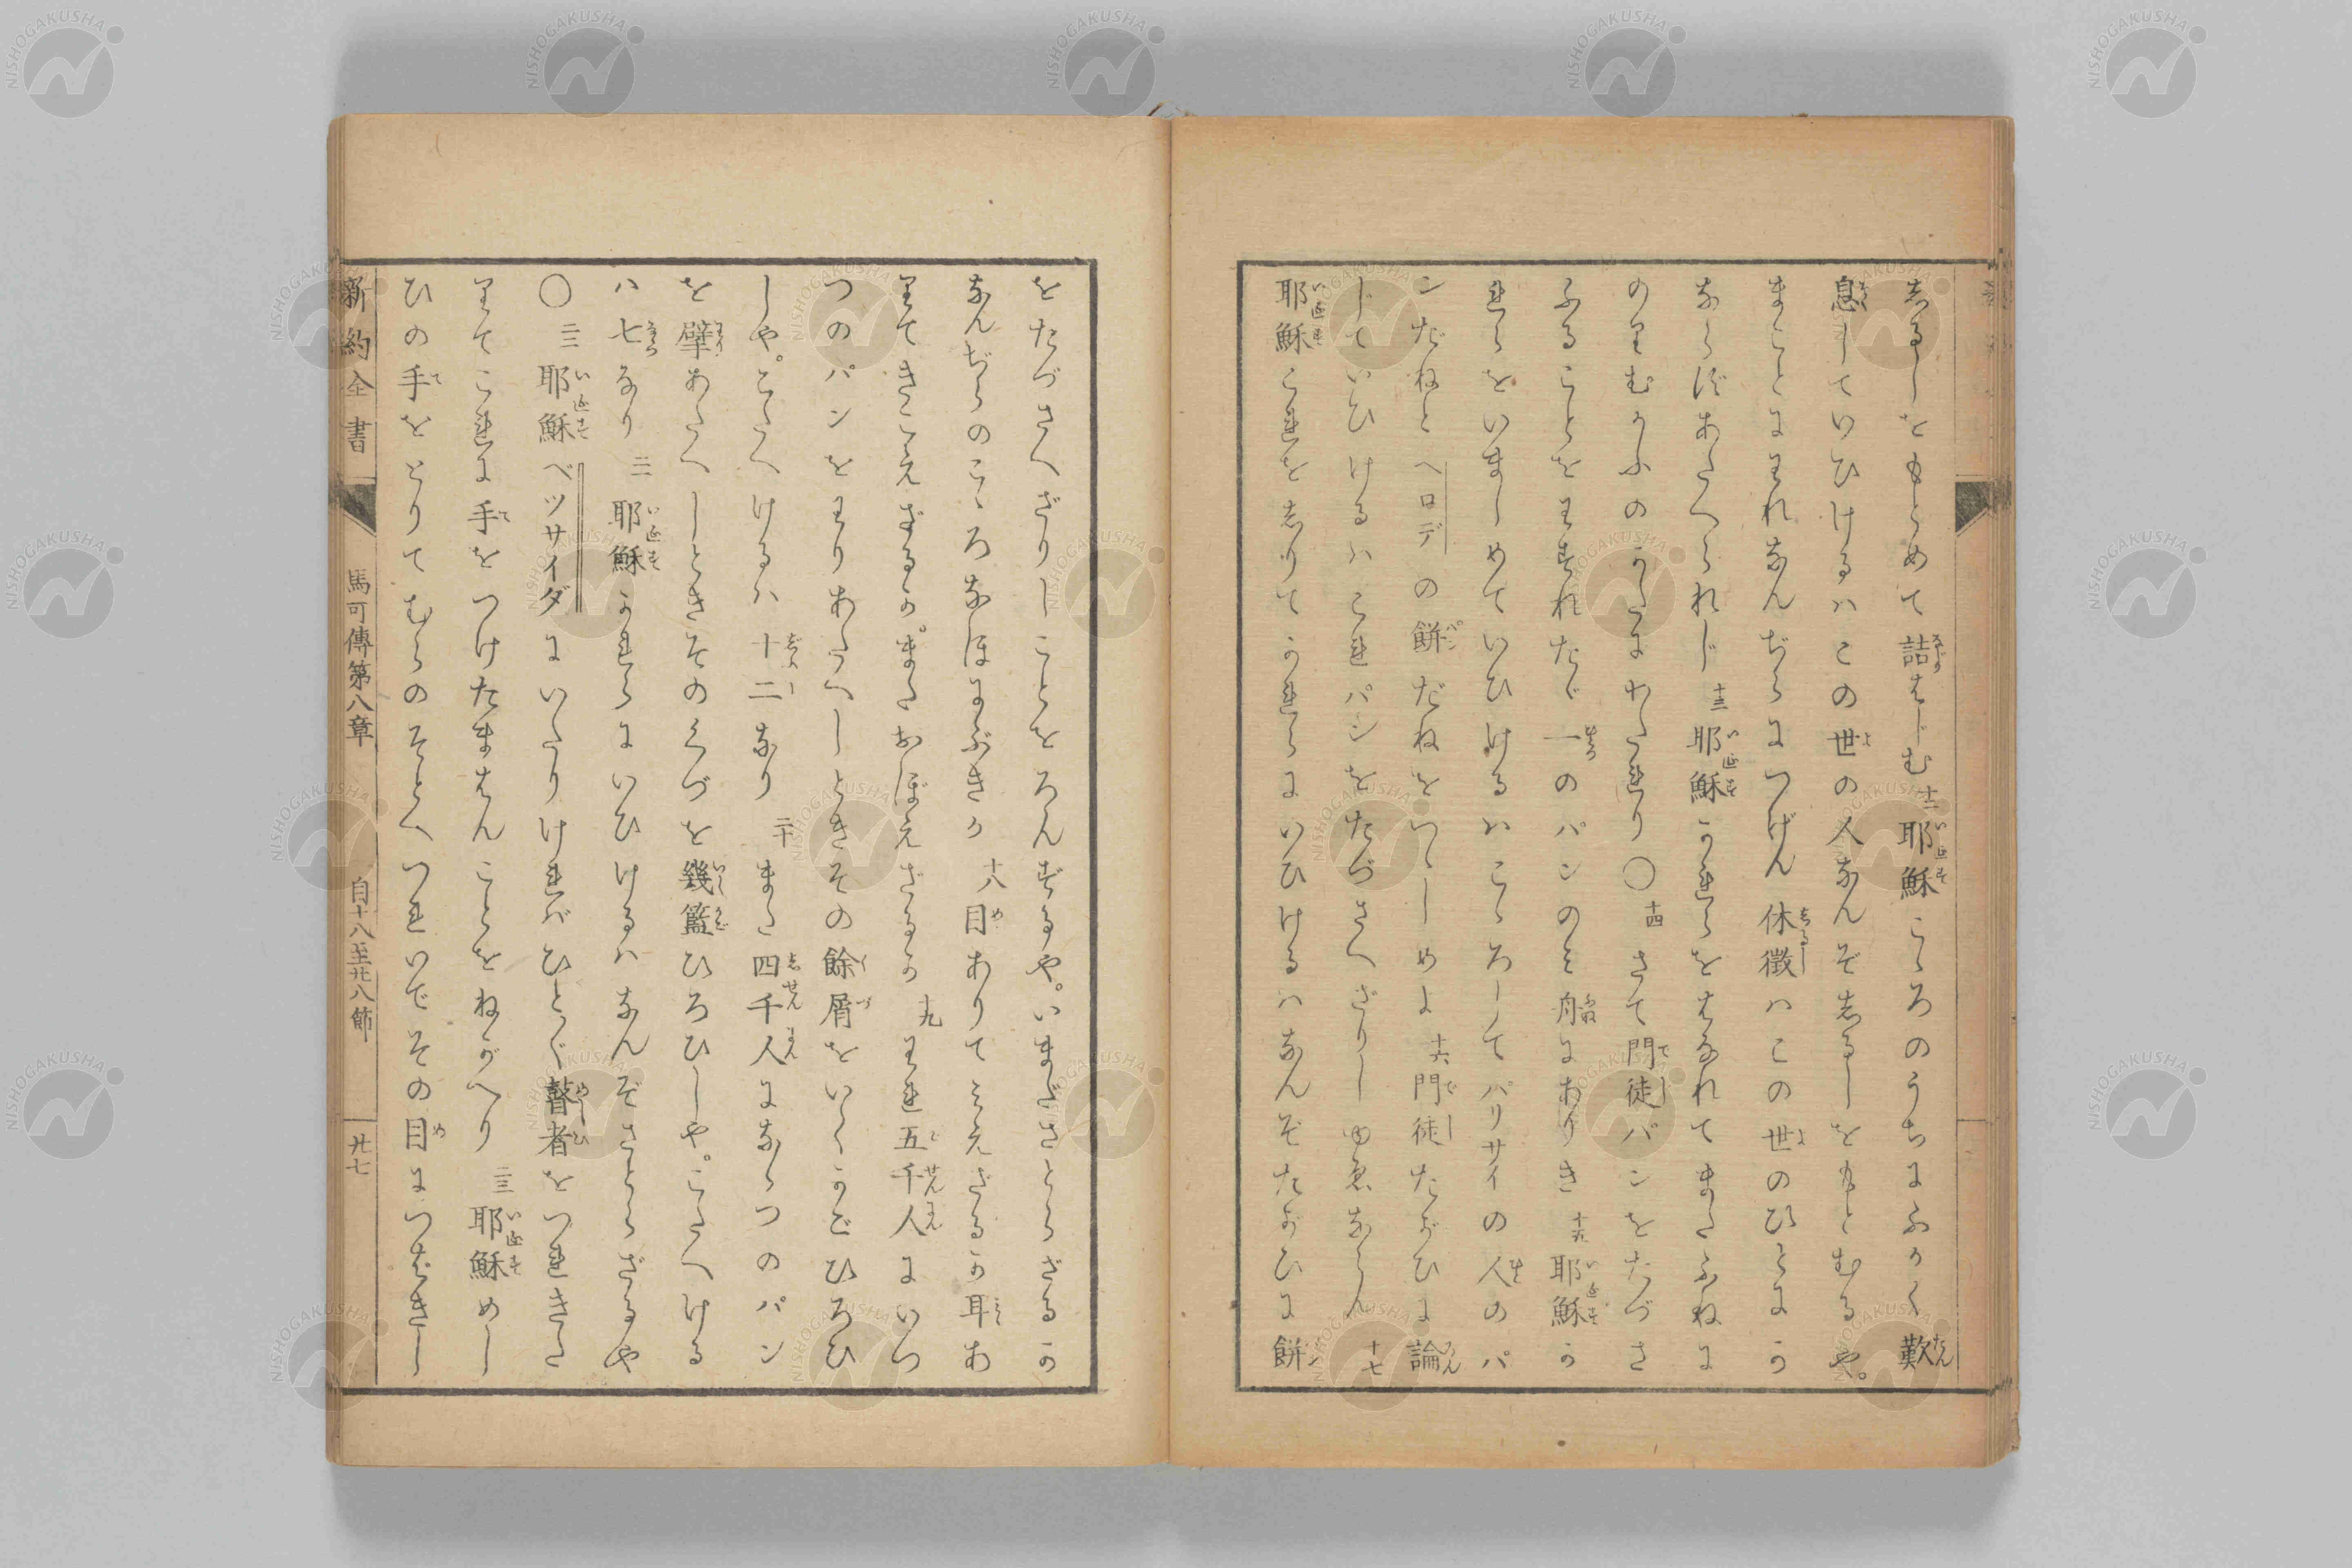 志るしをもとめて詰はじむ 十二 耶穌こゝろのうちにふかく歎
息していひけるハこの世の人なんぞ志るしをもとむるや。
まことにわれなんぢらにつげん休徴ハこの世のひとにか
ならずあたへられじ 十三 耶穌かれらをはなれてまたふねに
のりむかふのかたにわたれり〇 十四 さて門徒パンをたづさ
ふることをわすれたゞ一のパンのミ舟にありき 十五 耶穌か
れらをいましめていひけるハこゝろしてパリサイの人のパ
ンだねとヘロデの餅だねをつゝしめよ 十六 門徒たがひに論
じていひけるハこれパンをたづさへざりしゆゑならん 十七
耶穌これを志りてかれらにいひけるハなんぞたがひに餅
をたづさへざりしことをろんずるや。いまださとらざるか
なんぢらのこゝろなほにぶきか 十八 目ありてミえざるか耳あ
りてきこえざるか。またおぼえざるか 十九 われ五千人にいつ
つのパンをわりあたへしときその餘屑をいくかごひろひ
しや。こたへけるハ十二なり 二十 また四千人になゝつのパン
を擘あたへしときそのくづを幾籃ひろひしや。こたへける
ハ七なり 二一 耶穌かれらにいひけるハなんぞさとらざるや
〇 二二 耶穌ベツサイダにいたりければひとゞゝ瞽者をつれきた
りてこれに手をつけたまはんことをねがへり 二三 耶穌めし
ひの手をとりてむらのそとへつれいでその目につばきし
新約全書 馬可傳第八章 自十八至廿八節 廿七